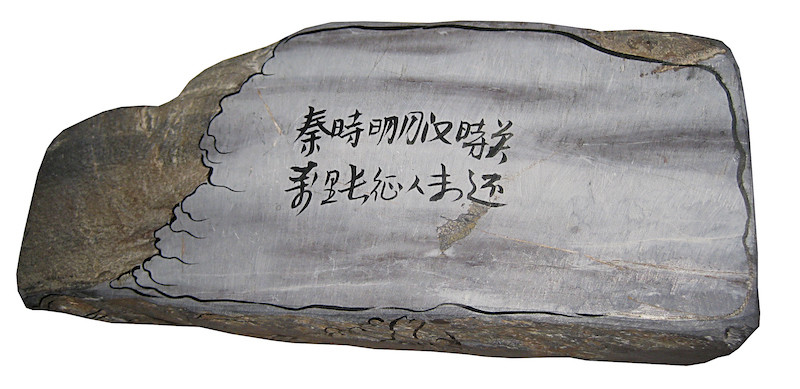 秦時明月汉時关
萬里长征人未还